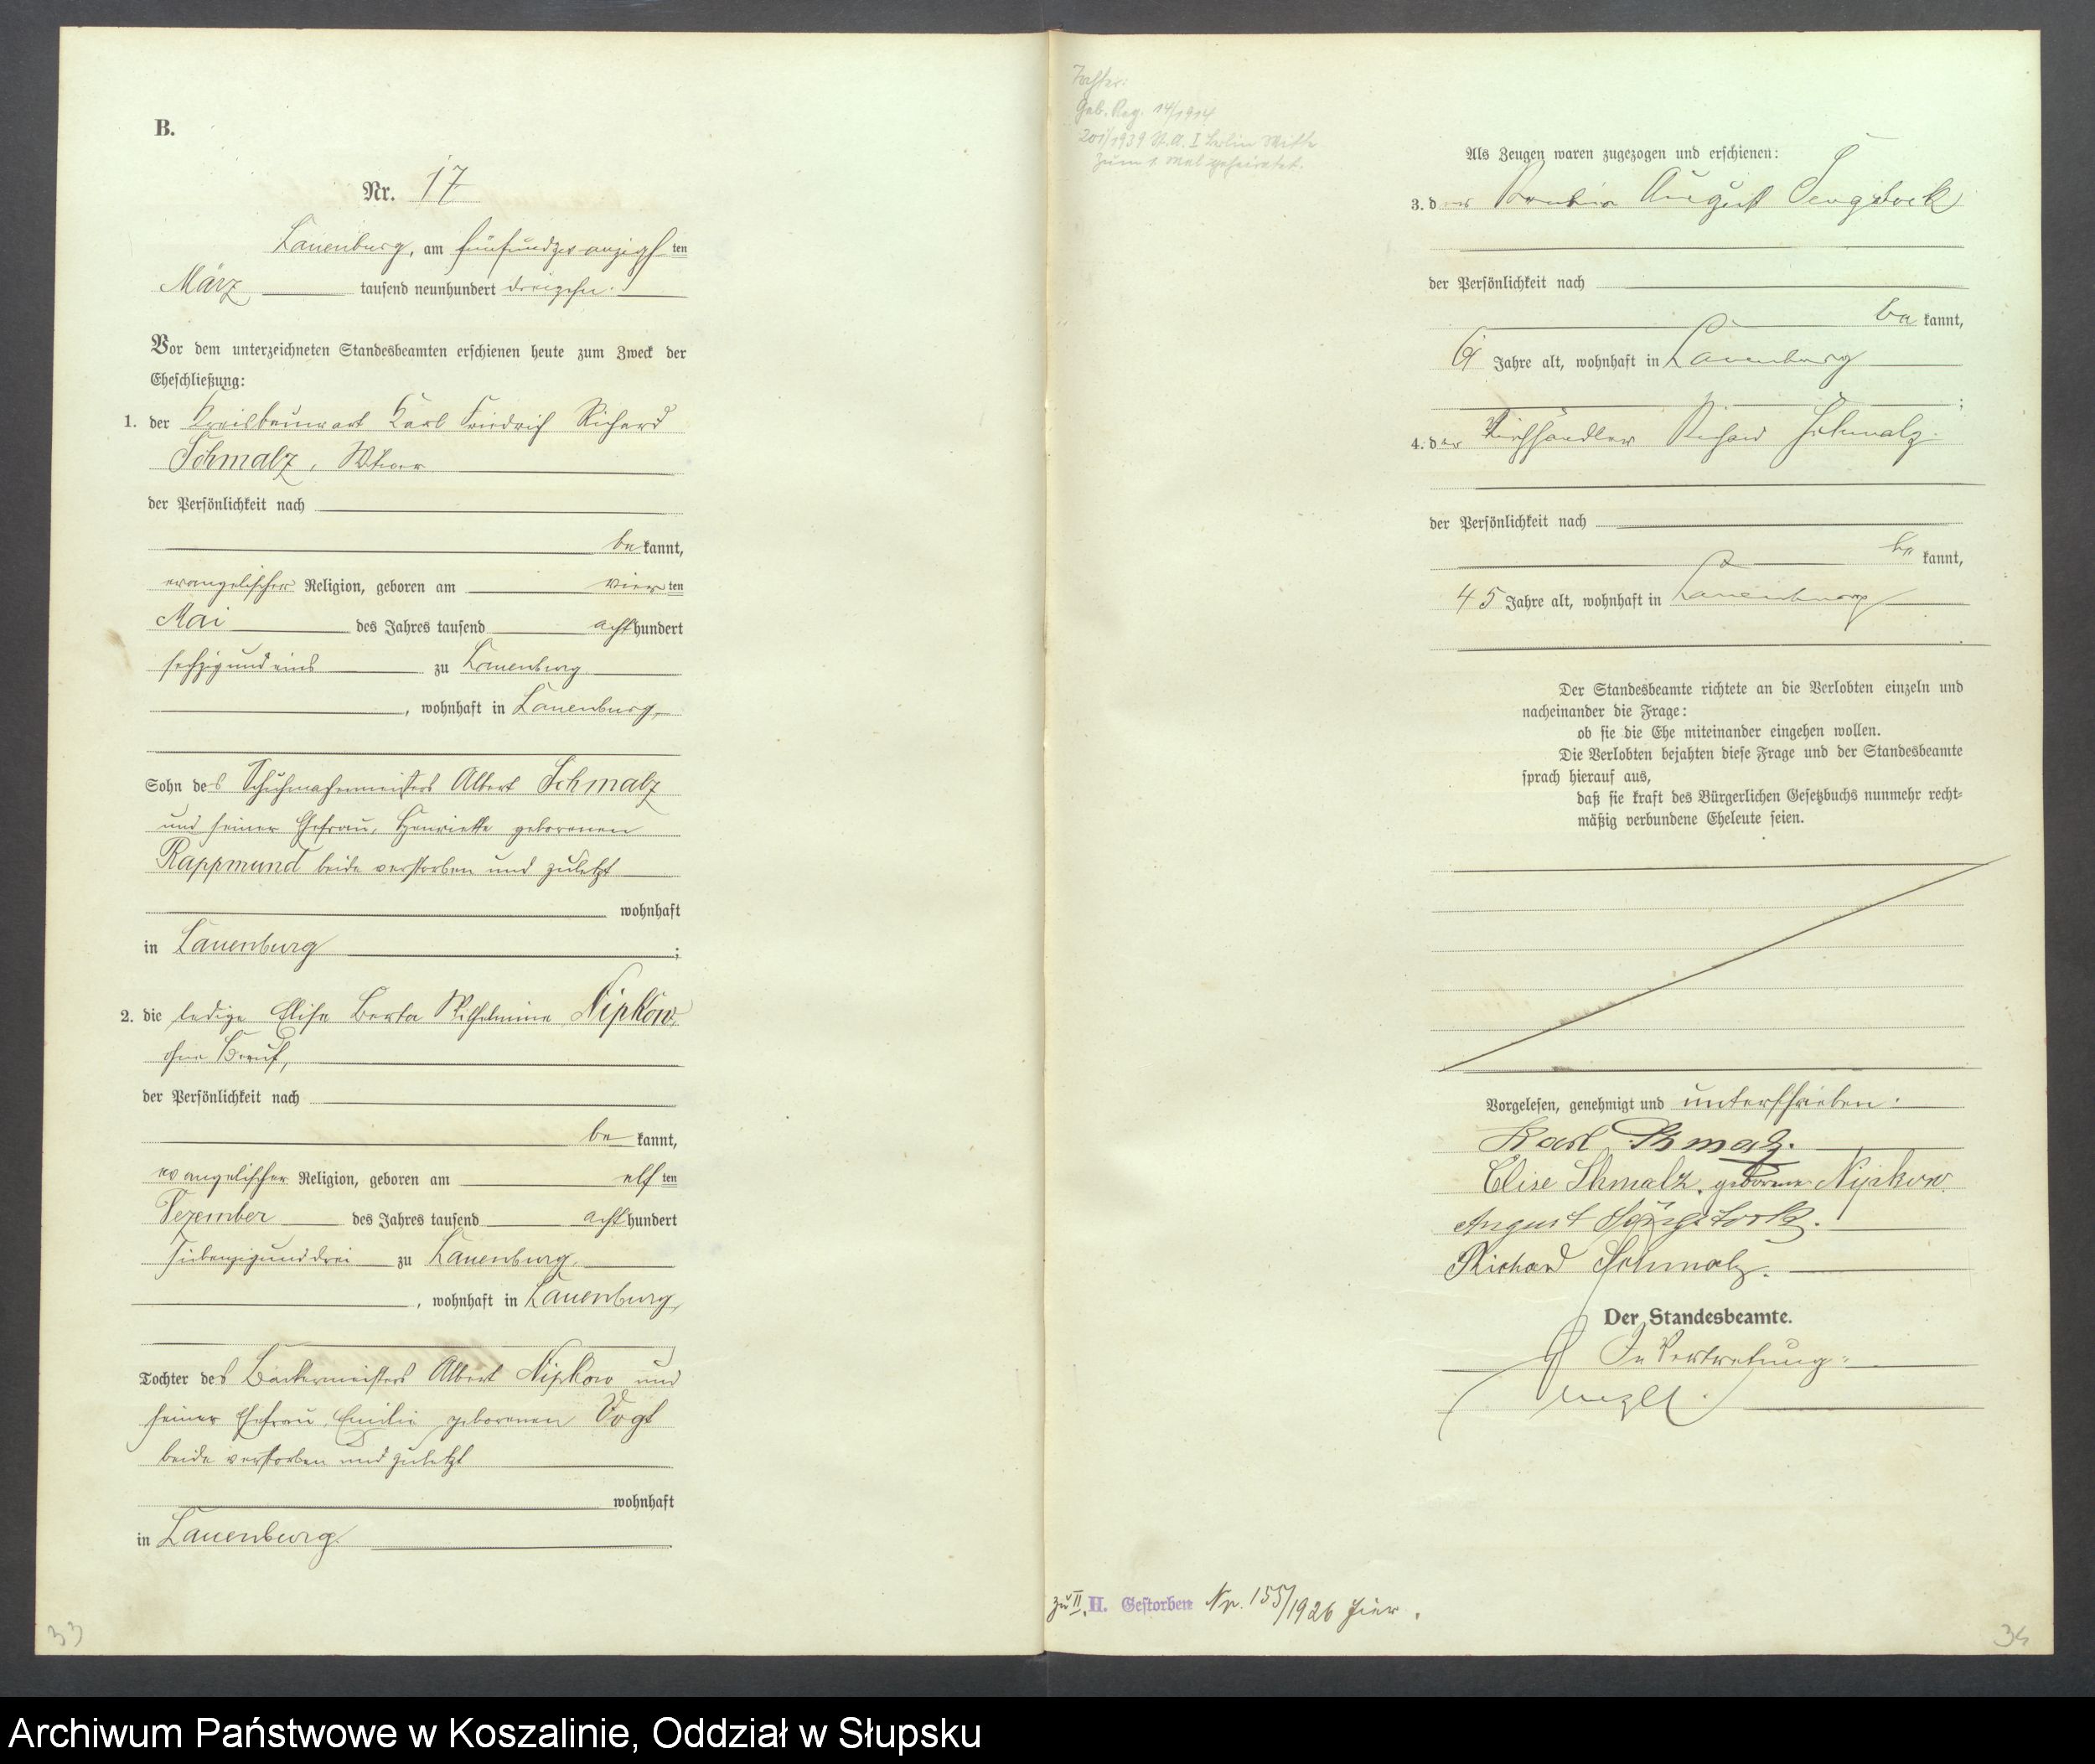 B.
Nr. 17
Lauenburg, am fünfundzwanzigsten
März tausend neunhundert dreizehn.
Vor dem unterzeichneten Standesbeamten erschienen heute zum Zweck der
Eheschließung:
1. der Karl Friedrich Richard
Schmalz, Witwer
der Persönlichkeit nach
bekannt,
evangelischer Religion, geboren am vierten
Mai des Jahres tausend achthundert
sechzig und eins zu Lauenburg
, wohnhaft in Lauenburg,
Sohn des Schuhmachermeisters Albert Schmalz
und seiner Ehefrau, Henriette geborenen
Rappmund beide verstorben und zuletzt
wohnhaft
in Lauenburg ;
2. die ledige Elise Berta Wilhelmine Nipkow,
ohne Beruf,
der Persönlichkeit nach
bekannt,
evangelischer Religion, geboren am elften
Dezember des Jahres tausend achthundert
siebenzig und drei zu Lauenburg,
, wohnhaft in Lauenburg,
Tochter des Bäckermeisters Albert Nipkow und
seiner Ehefrau Emilie geborenen Vogt
beide verstorben und zuletzt
wohnhaft
in Lauenburg.
33
Tochter:
Geb. Reg. 14/1914
201/1939 St.A. I Berlin Mitte
zum 1. Mal geheiratet.
Als Zeugen waren zugezogen und erschienen:
3. der Rentier August Sengstock
der Persönlichkeit nach
bekannt,
61 Jahre alt, wohnhaft in Lauenburg
;
4. der Viehhändler Richard Schmalz
der Persönlichkeit nach
bekannt,
45 Jahre alt, wohnhaft in Lauenburg
.
Der Standesbeamte richtete an die Verlobten einzeln und
nacheinander die Frage:
ob sie die Ehe miteinander eingehen wollen.
Die Verlobten bejahten diese Frage und der Standesbeamte
sprach hierauf aus,
daß sie kraft des Bürgerlichen Gesetzbuchs nunmehr recht-
mäßig verbundene Eheleute seien.
Vorgelesen, genehmigt und unterschrieben.
Karl Schmalz.
Elise Schmalz, geborene Nipkow.
August Sengstock.
Richard Schmalz.
Der Standesbeamte.
In Vertretung:
zu II. II. Gestorben Nr. 155/1926 hier.
34
Archiwum Państwowe w Koszalinie, Oddział w Słupsku